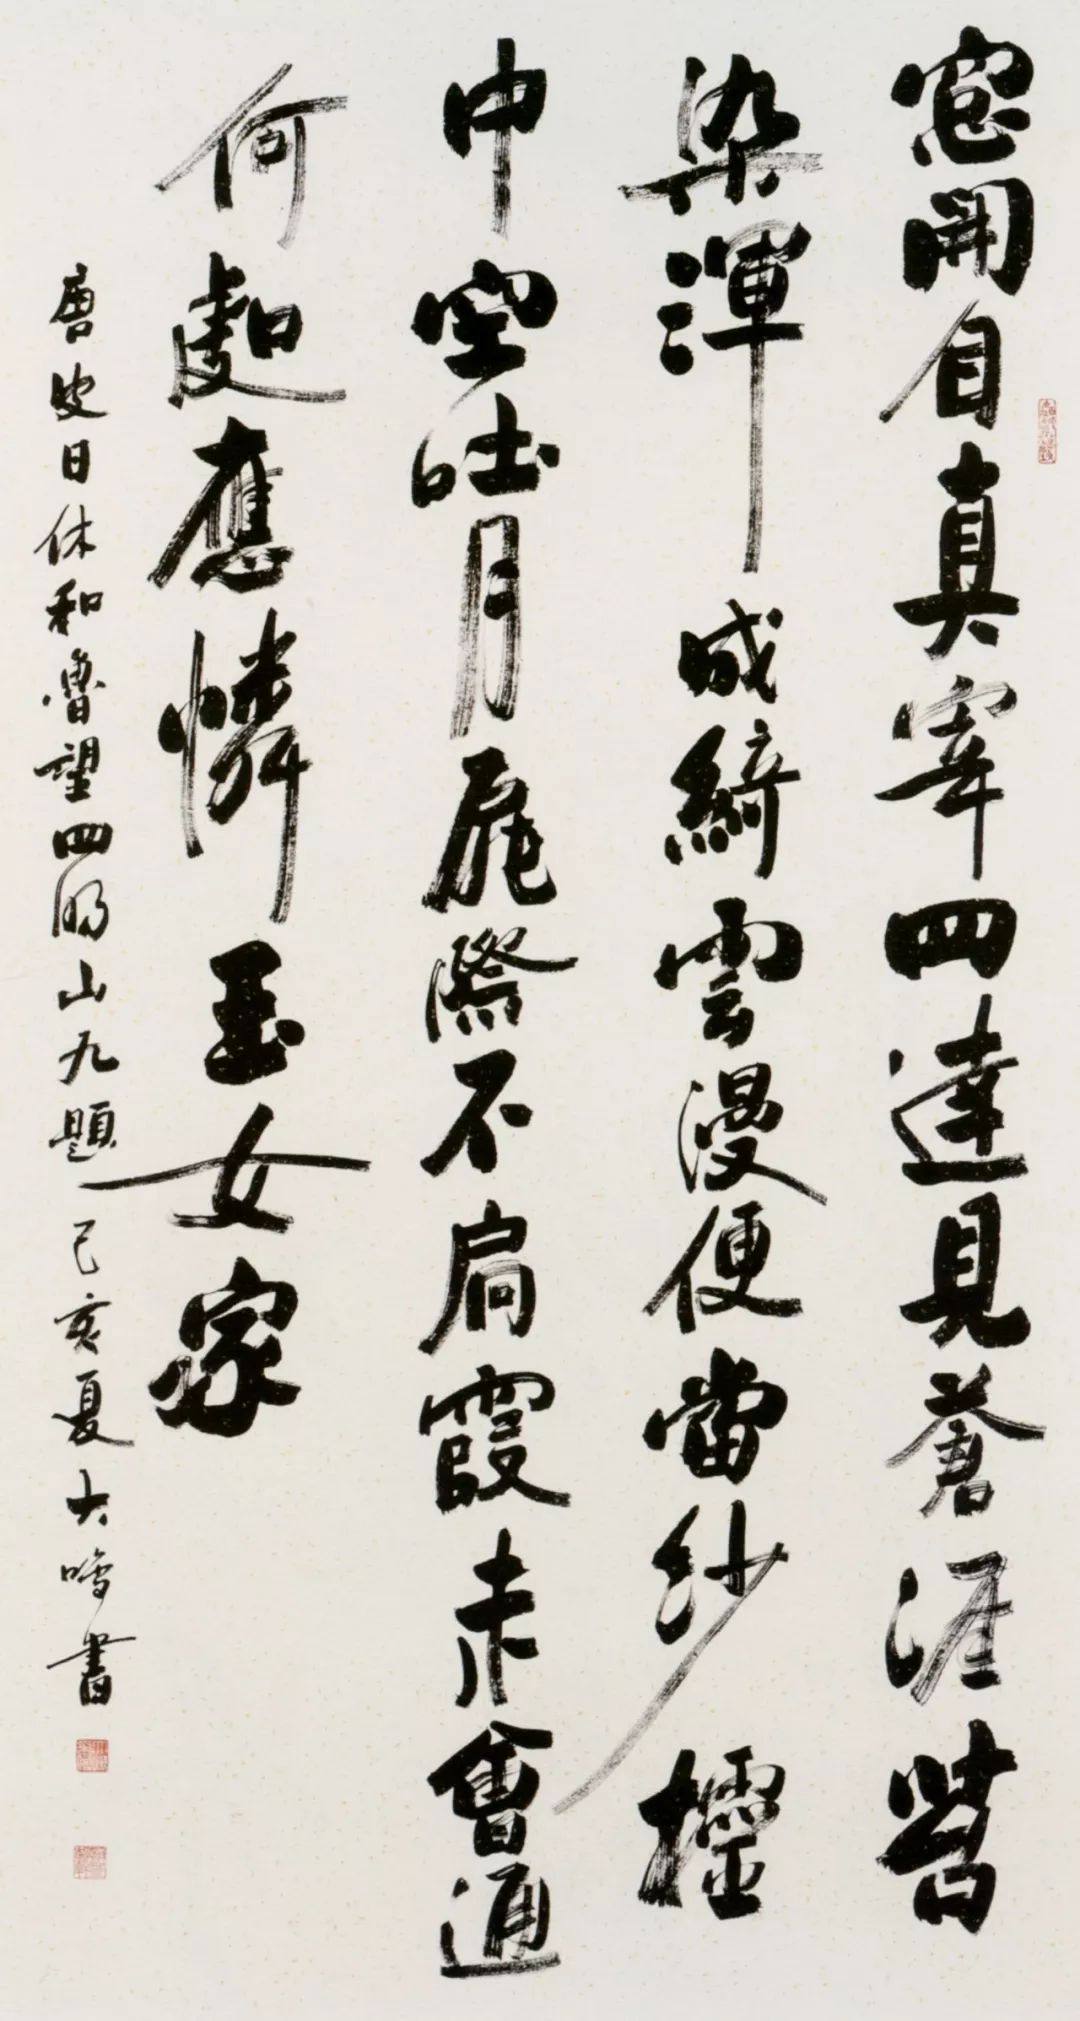 窓開自真宰四達見蒼涯苔
染渾成綺雲漫便當紗櫺
中空吐月扉際不扃霞未會通
何處應憐玉女家
唐皮日休和魯望四明山九題 己亥夏大鳴書